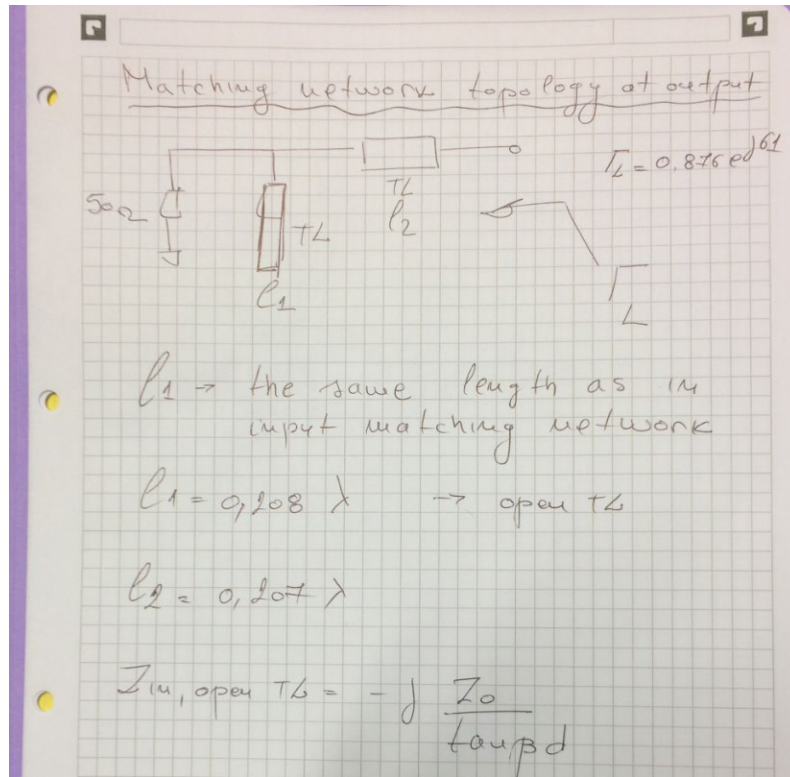 Matching network topology at output
ΓL = 0.876 e^j61
50Ω
TL
l1
TL
l2
ΓL
l1 → the same length as in
input matching network
l1 = 0,208 λ → open TL
l2 = 0,207 λ
Zin, open TL = - j Z0 / tanβd